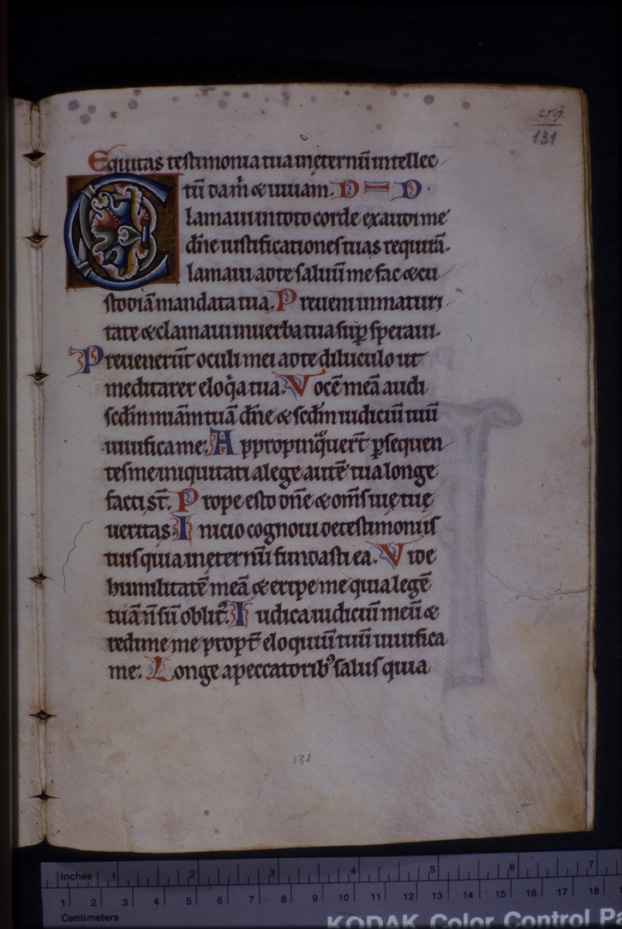 259.
131
Equitas testimonia tua ineternū intellec
tū dam̄ & uiuam. D = D
C lamaui in toto corde exaudi me
dn̄e iustificationes tuas requirā.
C lamaui ad te saluū me fac & cu
stodiā mandata tua. P reueni in maturi
tate & clamaui in uerba tua sup̱ speraui.
P reuenerūt oculi mei ad te diluculo ut
meditarer eloq̇a tua. V ocē meā audi
sedm̄ miam̄ tuā dn̄e & sedm̄ iudiciū tuū
uiuifica me. A ppropinq̇uert̄ p̱sequen
tes me iniquitati a lege autē tua longe
facti st̄. P rope esto dn̄e & om̄s uię tuę
ueritas. I nicio cognoui de testimoniis
tuis quia inęternū fundasti ea. V ide
humilitatē meā & eripe me quia legē
tuā n̄ sū oblitꝰ. I udica iudiciū meū &
redime me propt̄ eloquiū tuū uiuifica
me. L onge a peccatoribꝰ salus quia
131
Inches 1 2 3 4 5 6 7
1 2 3 4 5 6 7 8 9 10 11 12 13 14 15 16 17 18
Centimeters
KODAK Color Control Pa